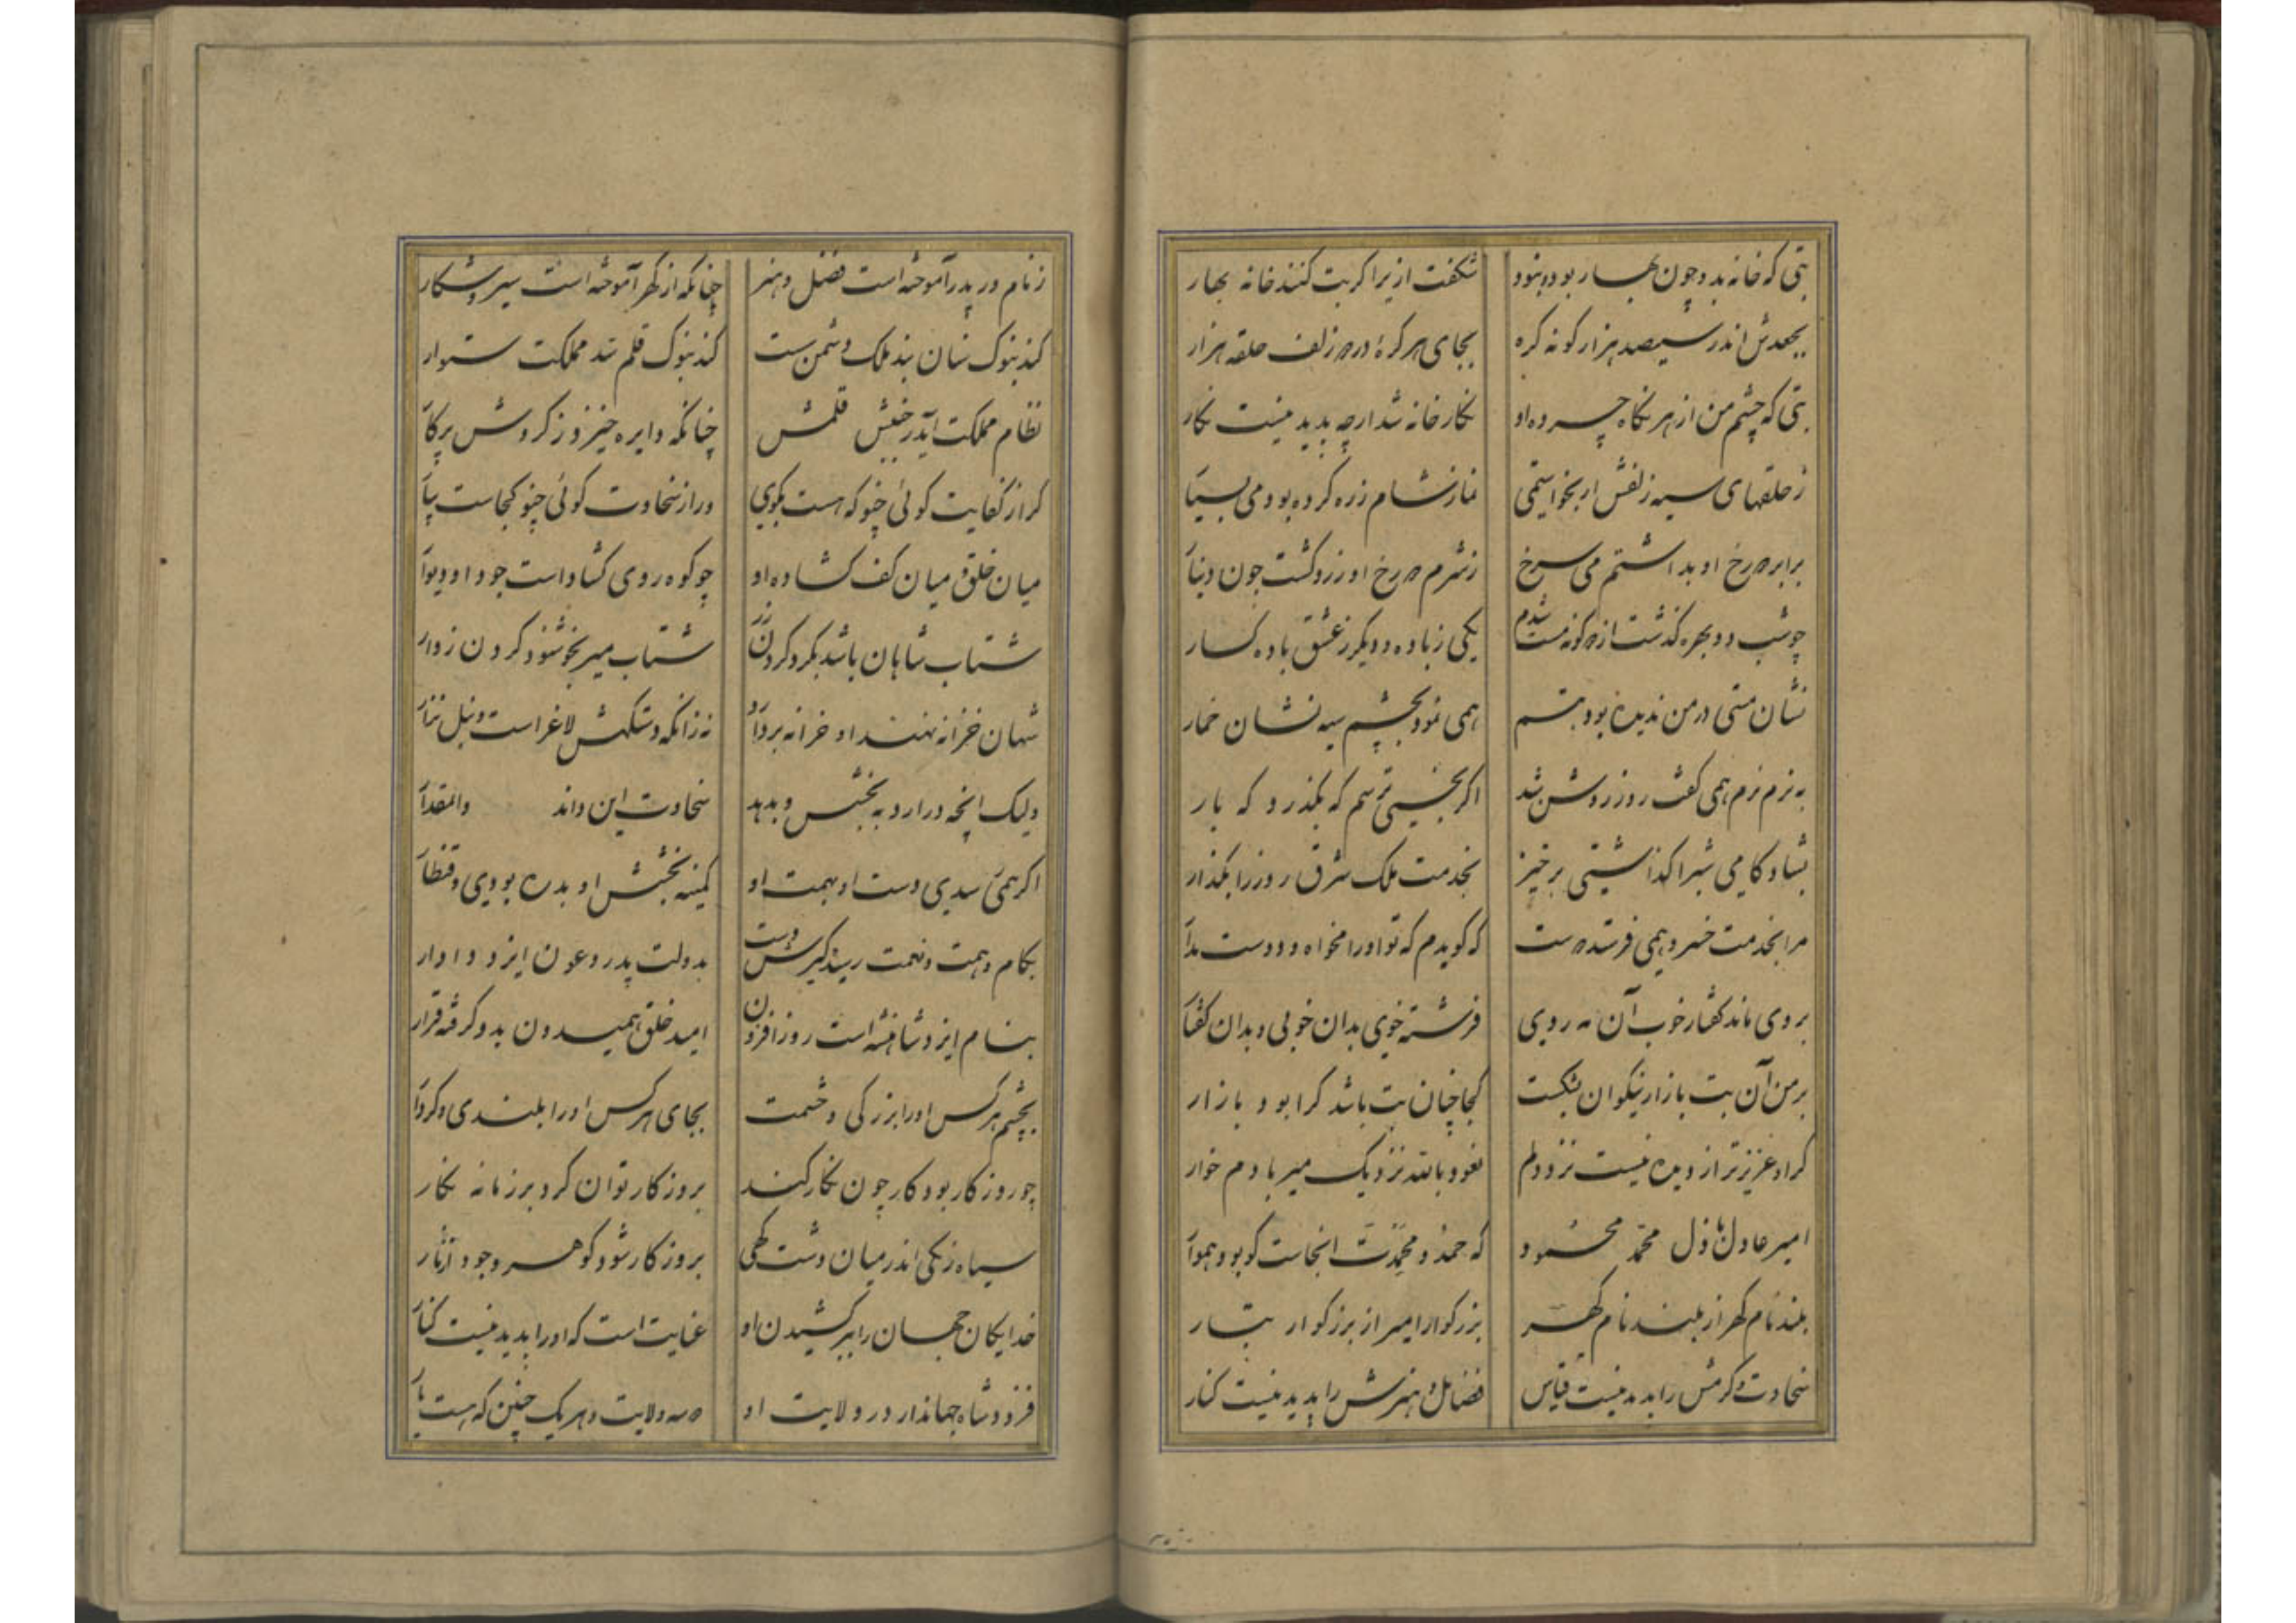 بتی که خانه بدو چون بهار بود و نبود
شکفت از یرا کر بت کنند خانه بهار
بجعدش اندر سیصد هزار کونه کره
بجای هر کرهٔ در دو زلف حلقه هزار
بتی که چشم من از هر نکاه چهره او
نکار خانه شد ارچه بدید نیست نکار
ز حلقهای سیه زلفش ار بخواستمی
نماز شام زره کرده بودمی بسیار
برابر دو رخ او بداشتم می سرخ
ز شرم دو رخ او زرد کشت چون دینار
چو شب دو بهره کذشت از دو کونه مست شدم
یکی ز باده و دیکر ز عشق باده کسار
نشان مستی در من ندیده بود بتم
همی نمود بچشم سیه نشان خمار
به نرم نرم همی کفت روز روشن شد
اکر بخسبی ترسم که بکذرد که بار
بشاد کامی شب را کذاشتی برخیز
بخدمت ملک شرق روز را بکذار
مرا بخدمت خسرو همی فرستد دوست
که کویدم که تو او را مخواه و دوست مدار
بروی ماند کفتار خوب آن مه روی
فرشته خوی بدان خوبی و بدان کفتار
بر من آن بت بازار نیکوان بشکست
کجا چنان بت باشد کرا بود بازار
کر او عزیزتر از دیده نیست نزد دلم
نعوذ بالله نزدیک میر بادم خوار
امیر عادل باذل محمد محمود
که حمد و محمدت انجاست کو بود هموار
بلند نام کهر از بلند نام کهر
بزرکوار امیر از بزرکوار تبار
سخاوت و کرمش را بدید نیست قیاس
فضایل و هنرش را پدید نیست کنار
ز نامور پدر آموخته است فضل و هنر
چنانکه از کهر آموخته است سیر و شکار
کند بنوک سنان بند ملک دشمن سست
کند بنوک قلم بند مملکت ستوار
نظام مملکت آید ز جنبش قلمش
چنانکه دایره خیزد ز کردش پرکار
کر از کفایت کوئی چنو که هست بکوی
ور از سخاوت کوئی چنو کجاست بیار
میان خلق میان کف کشاده او
چو کوه روی کشاداست جود او دیوار
شتاب شاهان باشد بکرد کردن زر
شتاب میر بخوشنود کردن زوار
شهان خزانه نهند او خزانه بردارد
نه زانکه دستکهش لاغر است و نیل نزار
ولیک انچه در ارد به بخشش و بدهد
سخاوت این داند والمقدار
اکر همی سدی دست او بهمت او
کمینه بخشش او بدره بودی و قنطار
بکام و همت و نهمت رسد کرش دست
بدولت پدر و عون ایزد دادار
بنام ایزد شاهنشه است روز افزون
امید خلق همیدون بدو کرفته قرار
بچشم هر کس او را بزرکی و حشمت
بجای هر کس او را بلندی و کردار
چو روزکار بود کار چون نکار کند
بروزکار توان کرد بر زمانه نکار
سیاه زنکی اندر میان دشت کهی
بروزکار شود کوهر وجود آثار
خدایکان جهان را بر کشیدن او
عنایت است که او را بدید نیست کنار
فزود شاه جهاندار در ولایت او
دو سه ولایت و هر یک چنین که هست یار